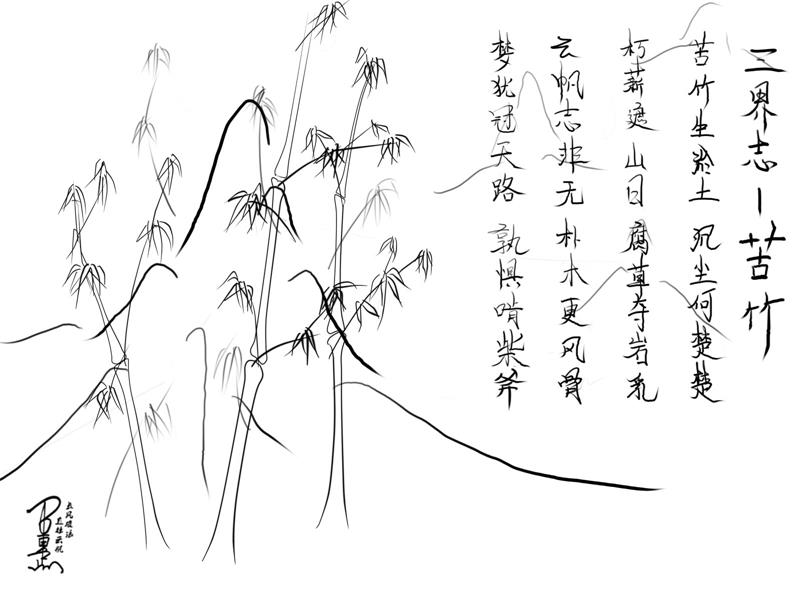 三界志－苦竹
苦竹生冷土 沉尘何楚楚
朽薪遮山日 腐草夺岩乳
云帆志非无 朴木更风骨
梦犹冠天路 孰惧啃柴斧